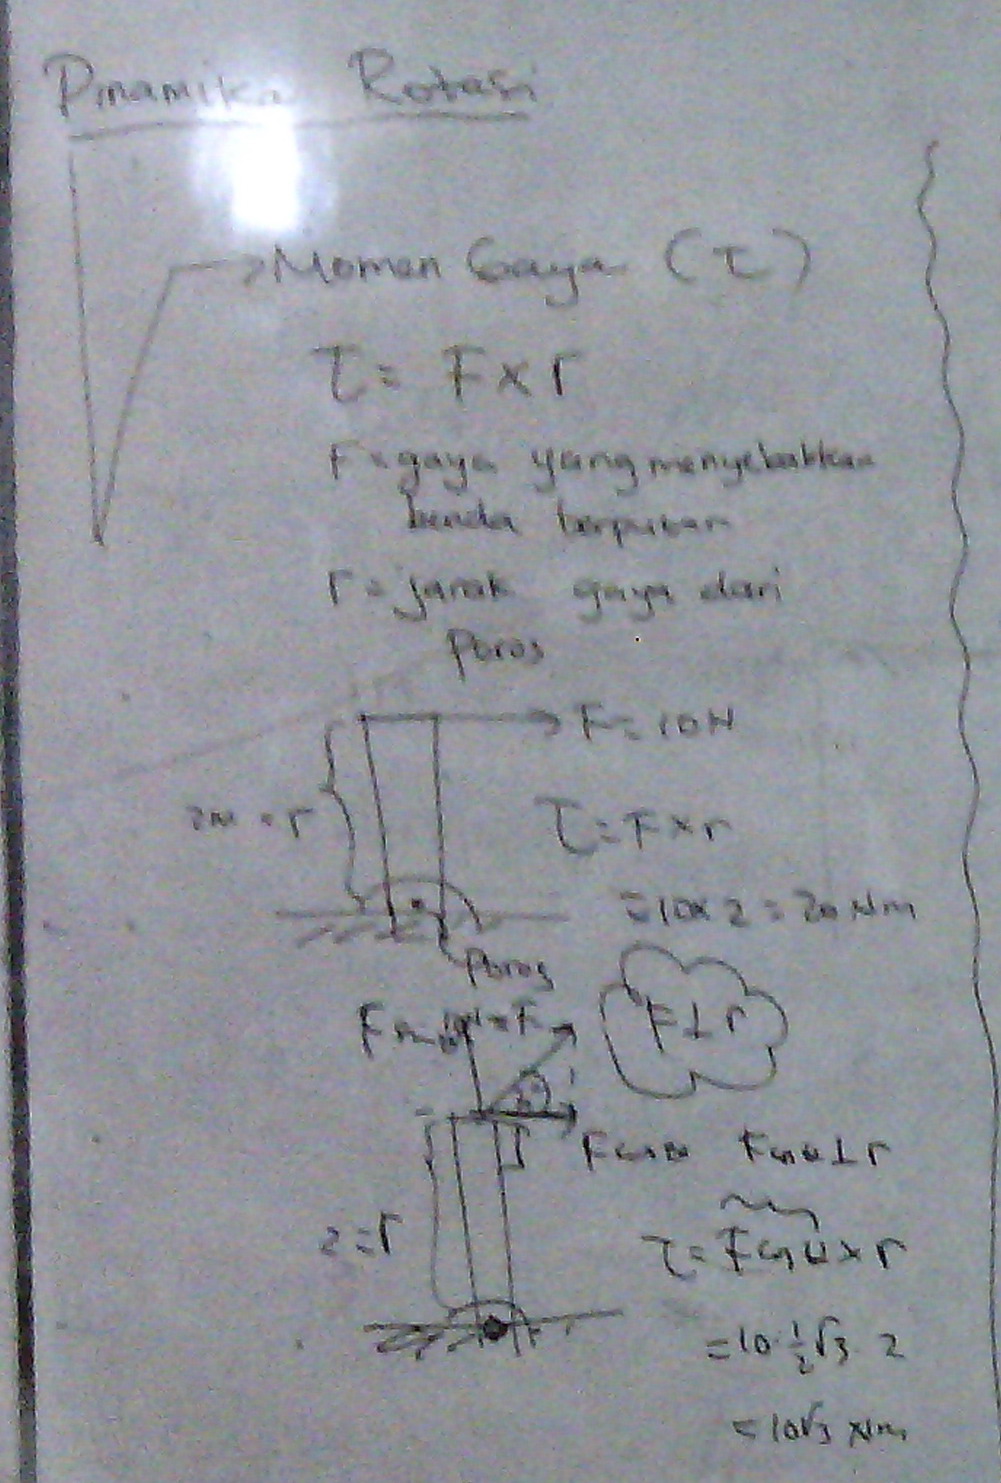 Dinamika Rotasi
Momen Gaya (τ)
τ = F × r
F = gaya yang menyebabkan
benda berputar
r = jarak gaya dari
Poros
F = 10 N
2m = r
τ = F × r
= 10 × 2 = 20 Nm
Poros
F sin θ 10N = F
F ⊥ r
F cos θ F cos θ ⊥ r
2 = r
τ = F cos θ × r
= 10 · ½√3 · 2
= 10√3 Nm